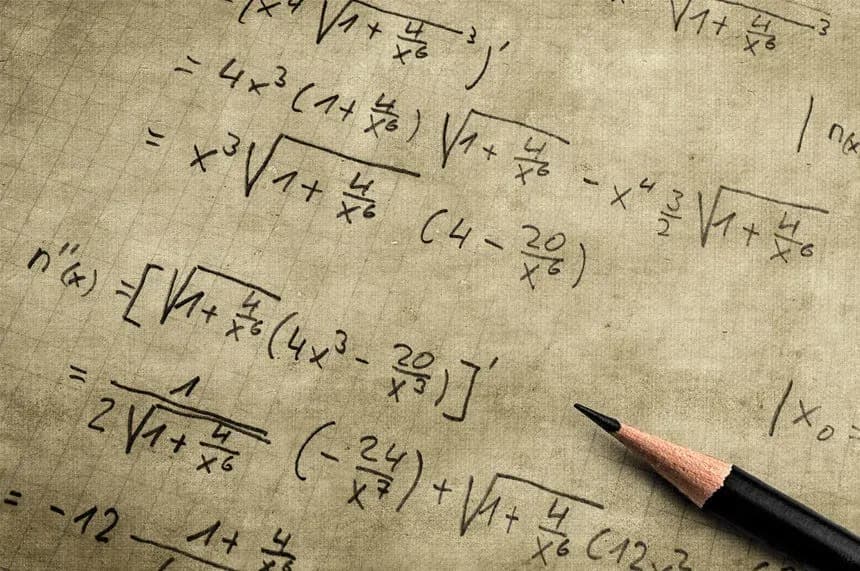 (x⁴ √(1 + 4/x⁶)³)′ √(1 + 4/x⁶)³
= 4x³ (1 + 4/x⁶) √(1 + 4/x⁶) - x⁴ 3/2 √(1 + 4/x⁶) | n(x
= x³ √(1 + 4/x⁶) (4 - 20/x⁶)
n″(x) = [√(1 + 4/x⁶) (4x³ - 20/x³)]′
= 1/(2√(1 + 4/x⁶)) (- 24/x⁷) + √(1 + 4/x⁶) (12x² | x₀ =
= -12 1 + 4/x⁶